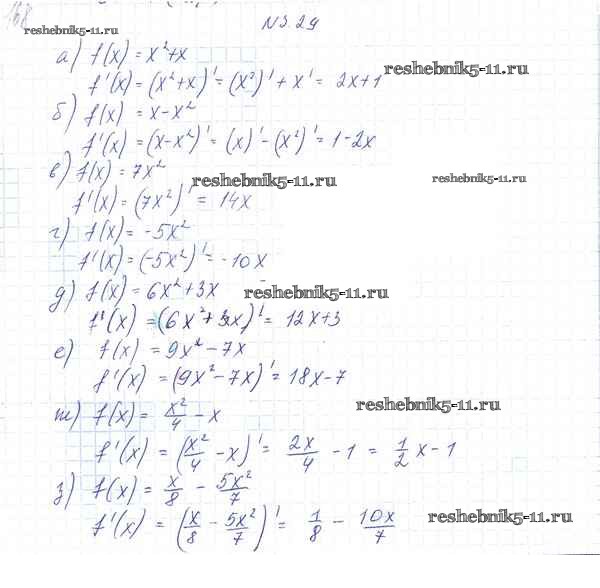 168
reshebnik5-11.ru
N 3.29
а) f(x) = x²+x
reshebnik5-11.ru
f'(x) = (x²+x)' = (x²)' + x' = 2x+1
б) f(x) = x-x²
f'(x) = (x-x²)' = (x)' - (x²)' = 1-2x
в) f(x) = 7x²
reshebnik5-11.ru
reshebnik5-11.ru
f'(x) = (7x²)' = 14x
г) f(x) = -5x²
f'(x) = (-5x²)' = -10x
д) f(x) = 6x²+3x
reshebnik5-11.ru
f'(x) = (6x²+3x)' = 12x+3
е) f(x) = 9x²-7x
f'(x) = (9x²-7x)' = 18x-7
ж) f(x) = x²/4 - x
reshebnik5-11.ru
f'(x) = (x²/4 - x)' = 2x/4 - 1 = 1/2 x - 1
з) f(x) = x/8 - 5x²/7
f'(x) = (x/8 - 5x²/7)' = 1/8 - 10x/7
reshebnik5-11.ru